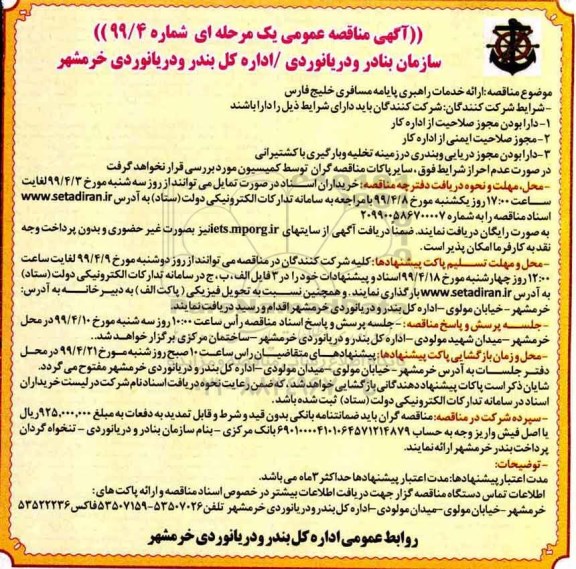 ((آگهی مناقصه عمومی یک مرحله ای شماره ۹۹/۴))
سازمان بنادر ودریانوردی /اداره کل بندر ودریانوردی خرمشهر
موضوع مناقصه:ارائه خدمات راهبری پایامه مسافری خلیج فارس
-شرایط شرکت کنندگان: شرکت کنندگان باید دارای شرایط ذیل را دارا باشند
۱-دارا بودن مجوز صلاحیت از اداره کار
۲-مجوز صلاحیت ایمنی از اداره کار
۳-دارا بودن مجوز دریایی وبندری درزمینه تخلیه وبارگیری باکشتیرانی
در صورت عدم احراز شرایط فوق ، سایر پاکات مناقصه گران توسط کمیسیون مورد بررسی قرار نخواهد گرفت
-محل، مهلت و نحوه دریافت دفترچه مناقصه: خریداران اسناد در صورت تمایل می توانند از روز سه شنبه مورخ ۹۹/۴/۳ لغایت
ساعت ۱۷:۰۰ روز یکشنبه مورخ ۹۹/۴/۸ با مراجعه به سامانه تدارکات الکترونیکی دولت (ستاد) به آدرس www.setadiran.ir
اسناد مناقصه را به شماره ۲۰۹۹۰۰۵۸۶۷۰۰۰۰۷
به صورت رایگان دریافت نمایند. ضمنا دریافت آگهی از سایتهای iets.mporg.ir نیز بصورت غیر حضوری و بدون پرداخت وجه
نقد به کارفرما امکان پذیر است.
-محل و مهلت تسلیم پاکت پیشنهادها: کلیه شرکت کنندگان در مناقصه می توانند از روز دوشنبه مورخ ۹۹/۴/۹ لغایت ساعت
۱۲:۰۰ روز چهارشنبه مورخ ۹۹/۴/۱۸ اسناد و پیشنهادات خود را در ۳ فایل الف، ب، ج در سامانه تدارکات الکترونیکی دولت (ستاد)
به آدرس www.setadiran.ir بارگذاری نمایند. و همچنین نسبت به تحویل فیزیکی ( پاکت الف ) به دبیرخانه به آدرس:
خرمشهر - خیابان مولوی -اداره کل بندر و دریانوردی خرمشهر اقدام و رسید دریافت نمایند.
-جلسه پرسش و پاسخ مناقصه: - جلسه پرسش و پاسخ اسناد مناقصه رأس ساعت ۱۰:۰۰ روز سه شنبه مورخ ۹۹/۴/۱۰ در محل
خرمشهر -میدان شهید مولودی -اداره کل بندر و دریانوردی خرمشهر -ساختمان مرکزی برگزار خواهد شد.
-محل و زمان بازگشایی پاکت پیشنهادها: پیشنهادهای متقاضیان راس ساعت ۱۰ صبح روز شنبه مورخ ۹۹/۴/۲۱ در محل
دفتر جلسات به آدرس خرمشهر - خیابان مولوی - میدان مولودی - اداره کل بندر و دریانوردی خرمشهر مفتوح می گردد.
شایان ذکر است پاکات پیشنهاد دهندگانی بازگشایی خواهد شد که ضمن رعایت نحوه دریافت اسناد نام شرکت در لیست خریداران
اسناد در سامانه تدارکات الکترونیکی دولت (ستاد) ثبت شده باشد.
-سپرده شرکت در مناقصه: مناقصه گران باید ضمانتنامه بانکی بدون قید و شرط و قابل تمدید به دفعات به مبلغ ۹۲۵,۰۰۰,۰۰۰ ریال
یا اصل فیش واریز وجه به حساب ۶۹۰۱۰۰۰۰۴۱۰۱۰۶۴۵۷۱۲۱۴۸۷۹ بانک مرکزی - بنام سازمان بنادر و دریانوردی - تنخواه گردان
پرداخت بندر خرمشهر ارائه نمایند.
- توضیحات:
مدت اعتبار پیشنهادها: مدت اعتبار پیشنهادها حداکثر ۳ ماه می باشد.
اطلاعات تماس دستگاه مناقصه گزار جهت دریافت اطلاعات بیشتر در خصوص اسناد مناقصه و ارائه پاکت های:
خرمشهر -خیابان مولوی -میدان مولودی -اداره کل بندر و دریانوردی خرمشهر تلفن ۵۳۵۰۷۰۲۶-۵۳۵۰۷۱۵۹ فاکس ۵۳۵۲۲۲۳۶
روابط عمومی اداره کل بندر و دریانوردی خرمشهر